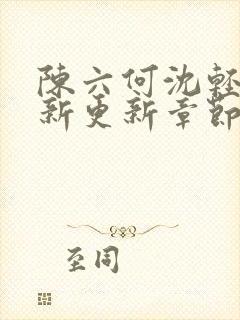 陳六何沈輕
新更新章節
至同